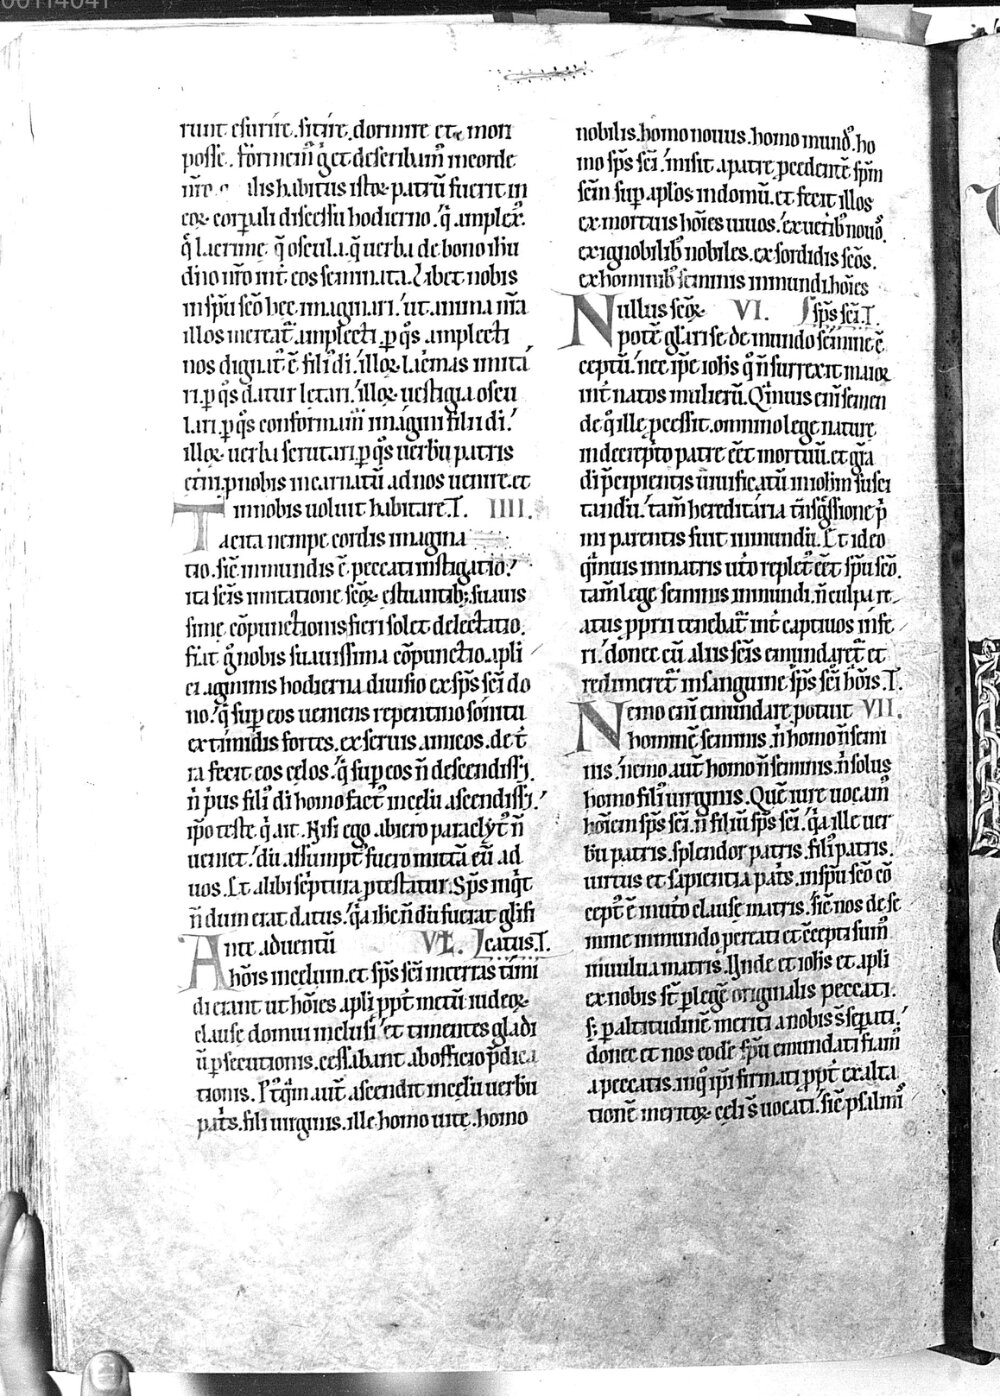 runt esurire.sitire.dormire et mori
posse. formem᷑ g̊ et describam᷑ in corde
nr̄o. lis habitus istoꝝ patrū fuerit in
eoꝝ corꝑali discessu hodierno.' q̄ amplex᷑.
q̄ lacrime. q̄ oscula.q̄ uerba de bono thū
diuino nr̄o int̄ eos seminata. Libet nobis
in sp̄u sc̄o hec imaginari.' ut anima nr̄a
illos mereat᷑ amplecti ꝑ q̊s amplecti
nos dignat᷑ ē fili᷒ di.' illoꝝ lacrimas imita
ri.ꝑ q̊s datur letari.' illoꝝ uestigia oscu
lari.ꝑ q̊s conformam᷑ imagini filii di.'
illoꝝ uerba scrutari.ꝑ q̊s uerbū patris
etiā.ꝓ nobis incarnatū ad nos uenire.et
in nobis uoluit habitare.T. IIII.
Tacita nempe cordis imagina
tio.sic̄ inmundis ē peccati instigatio.'
ita sc̄is imitatione sc̄oꝝ estuantib; suauis
sime cōpunctionis fieri solet delectatio.
fiat g̊ nobis suauissima cōpunctio.apli
ci agminis hodierna diuisio ex sp̄s sc̄i do
no.' q̄ suꝑ eos ueniens repentino sonitu
ex timidis fortes.ex seruis amicos.de t̄
ra fecit eos celos.' q̄ suꝑ eos n̄ descendiss;.
n̄ p̄us fili᷒ di homo fact᷒ mediū ascendiss;.'
ip̄o teste.q̄ ait. Nisi ego abiero paraclyt᷒ n̄
ueniet.' dū assumpt᷒ fuero mittā eū ad
uos. Et alibi sc̄ptura p̄testatur. Sp̄s inq̄t
n̄dum erat datus.' q̄a ihc̄ n̄dū fuerat glīfi
Ante aduentū VI. catus.T.
hōis medium.et sp̄s sc̄i in terras timi
di erant ut hōies.apli ꝓpt̄ metū iudeoꝝ
clause domui inclusi.' et timentes gladi
ū ꝑsecutionis.cessabant ab officio p̄dica
tionis. Postq̄m aut̄ ascendit mediū uerbū
pat̄s.fili᷒ uirginis.ille homo uite.homo
nobilis.homo nouus.homo mund᷒.ho
mo sp̄s sc̄i.' misit a patre ꝓcedentē sp̄m
sc̄m suꝑ aplos in domū.et fecit illos
ex mortuis hōies uiuos.' ex uetib᷒ nouos.
ex ignobilib᷒ nobiles.ex sordidis sc̄os.
ex hominib᷒ seminis inmundi.hōies
Nullus sc̄oꝝ VI. sp̄s sc̄i.T.
potē glīari se de mundo semine ē
ceptū.' nec ip̄e iohīs q̊ n̄ surrexit maior
int̄ natos mulierū. Q̄muis eni semen
de q̊ ille ꝓcessit.omnino lege nature
in decrepito patre eēt mortuū.et grā
di p̄cipientis uiuificatū in olim suscī
tandū.' tam̄ hereditaria t̄nsgssione p̄
mi parentis fuit inmundū. Et ideo
q̄muis in matris ut̄o replet᷒ eēt sp̄u sc̄o.
tam̄ lege seminis inmundi.n̄ culpa re
atus ꝓprii tenebat᷑ int̄ captiuos infe
ri.' donec eū alius sc̄is emundaret᷑ et
redimeret᷑ in sanguine sp̄s sc̄i hōis.T.
Nemo eni emundare potuit VII.
hominē seminis.n̄ homo n̄ semi
nis.' nemo aut̄ homo n̄ seminis.n̄ solus
homo fili᷒ uirginis. Quē iure uocam᷒
hōiem sp̄s sc̄i.n̄ filiū sp̄s sc̄i.' q̄a ille uer
bū patris.splendor patris.fili᷒ patris.
uirtus et sapientia pat̄s.in sp̄u sc̄o cō
cept᷒ ē in ut̄o clause matris.sic̄ nos de se
mine inmundo peccati et cōcepti sum᷒
in uulua matris. Unde et iohīs et apli
ex nobis st̄ ꝑ legē originalis peccati.
s; ꝑ altitudinē meriti a nobis s̄ seꝑati.'
donec et nos eodē sp̄u emundati fiam᷒
a peccatis.in q̊ ip̄i firmati ꝓpt̄ exalta
tionē meritoꝝ celi s̄ uocati.' sic̄ psalmi